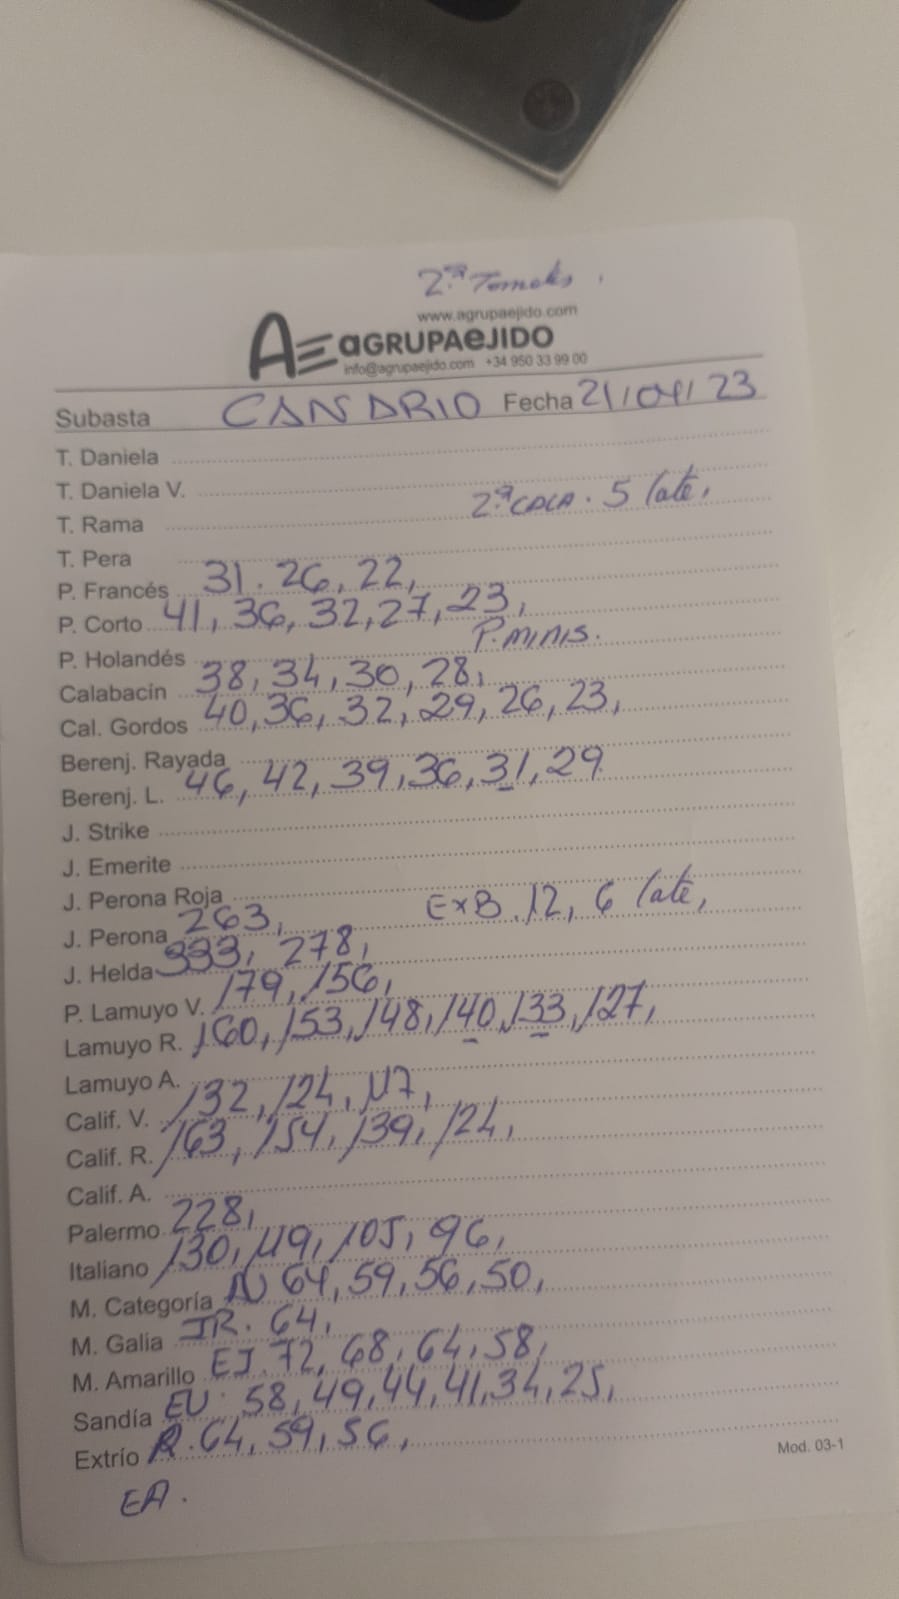 2ª Tomates.
www.agrupaejido.com
AE aGRUPAeJIDO
info@agrupaejido.com +34 950 33 99 00
Subasta CANARIO Fecha 21/04/23
T. Daniela
T. Daniela V.
T. Rama 2ª COLA. 5 late,
T. Pera
P. Francés 31. 26, 22,
P. Corto 41, 36, 32, 27, 23,
P. Holandés P. MINIS.
Calabacín 38, 34, 30, 28,
Cal. Gordos 40, 36, 32, 29, 26, 23,
Berenj. Rayada
Berenj. L. 46, 42, 39, 36, 31, 29
J. Strike
J. Emerite
J. Perona Roja
J. Perona 263, ExB. 12, 6 late,
J. Helda 333, 278,
P. Lamuyo V. 179, 156,
Lamuyo R. 160, 153, 148, 140, 133, 127,
Lamuyo A.
Calif. V. 132, 124, 117,
Calif. R. 163, 154, 139, 124,
Calif. A.
Palermo 228,
Italiano 130, 119, 105, 96,
M. Categoría N 64, 59, 56, 50,
M. Galia JR. 64,
M. Amarillo EJ. 72, 68, 64, 58,
Sandía EU. 58, 49, 44, 41, 34, 25,
Extrío R. 64, 59, 56,
Mod. 03-1
EA.